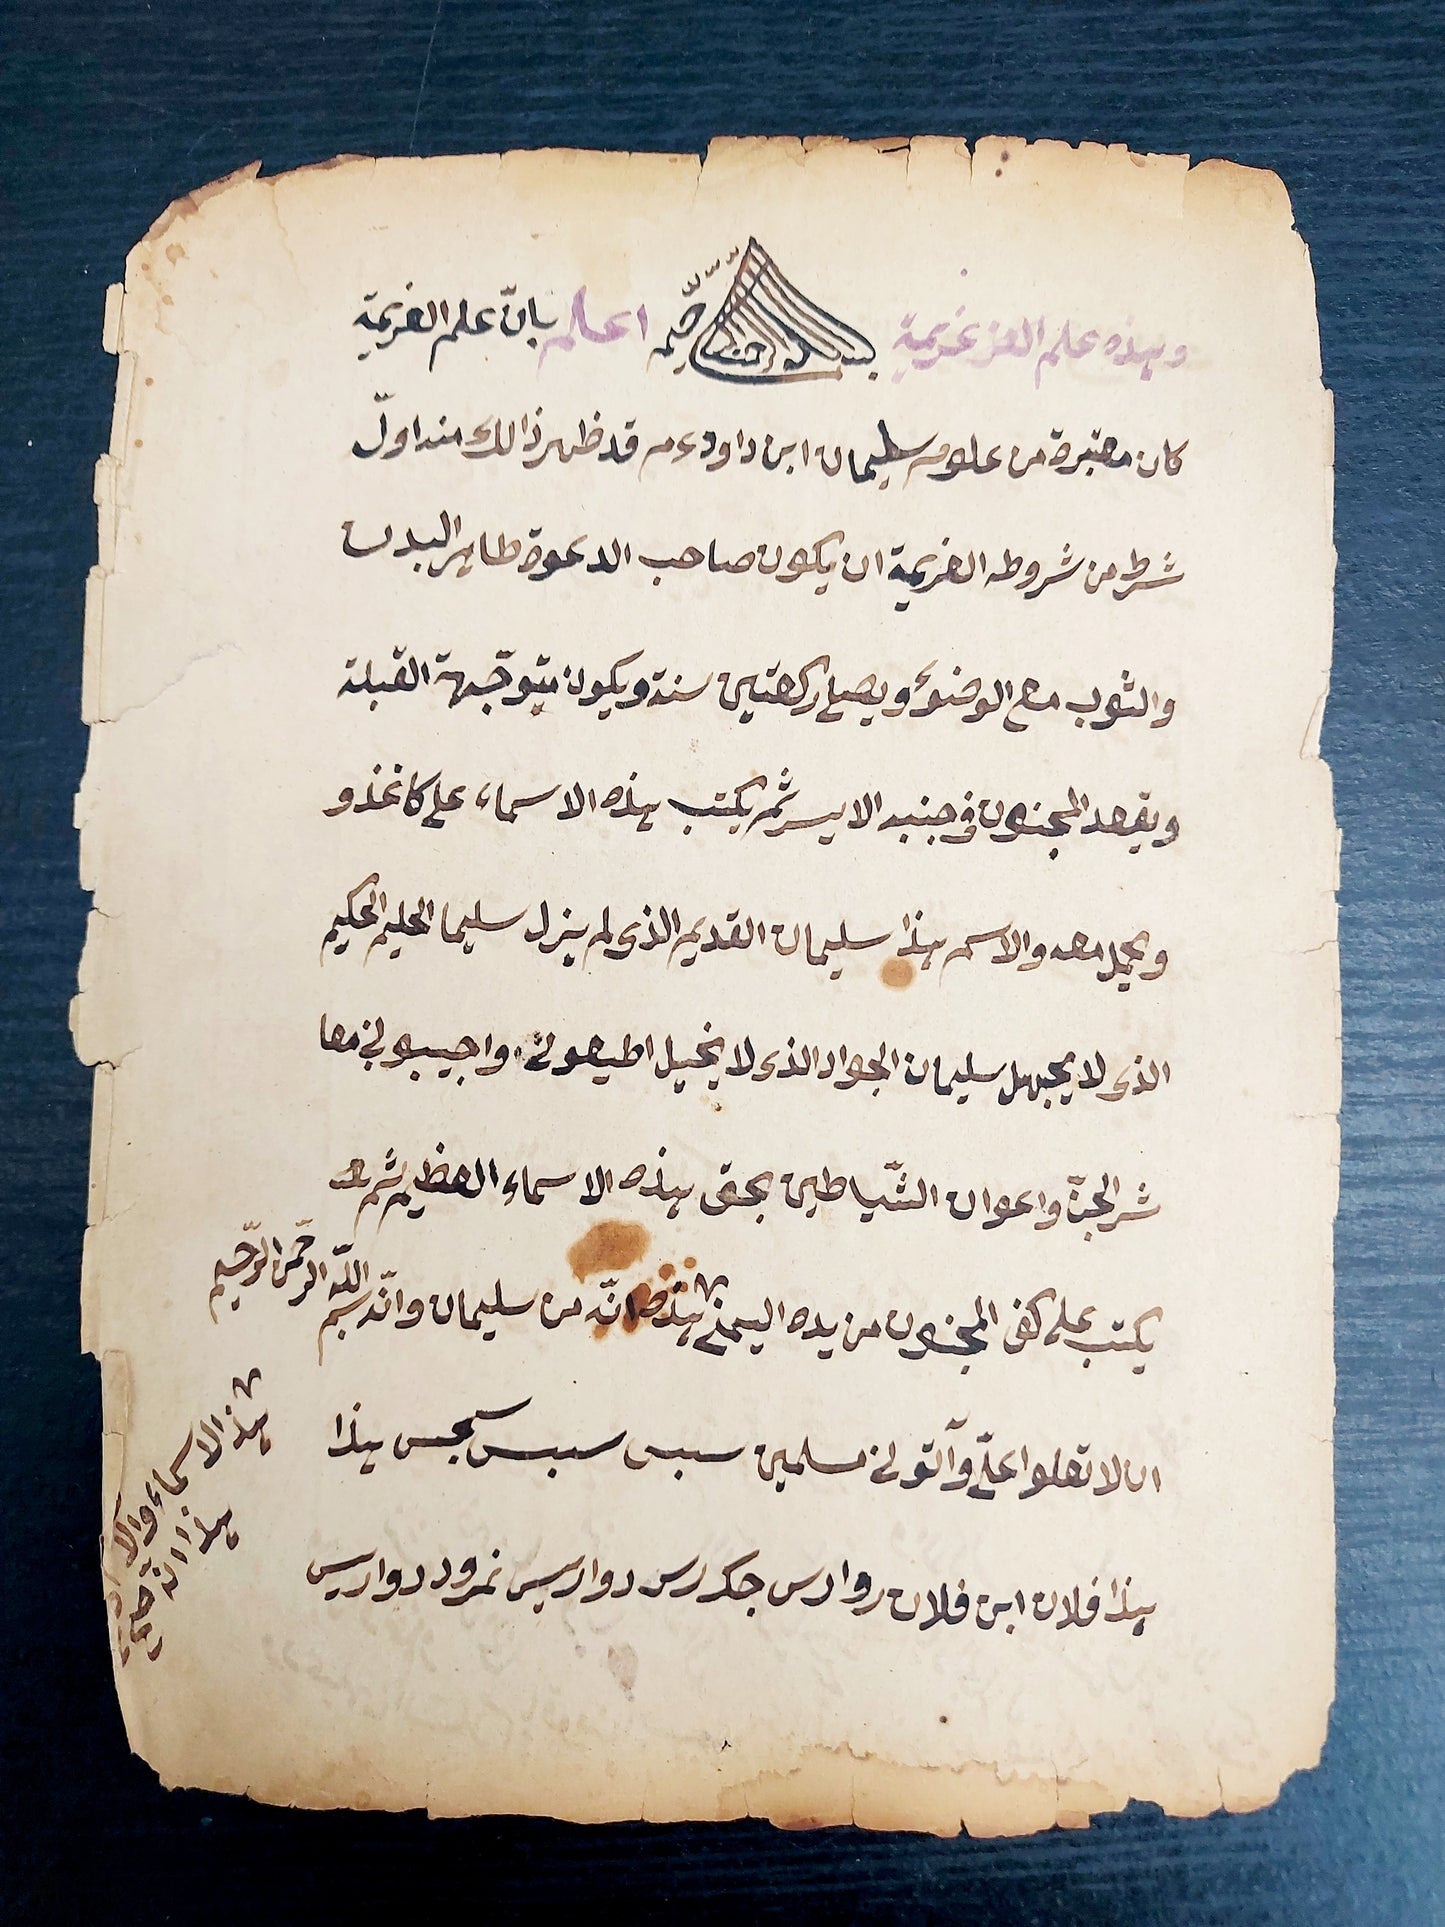 وهذه علم العز عزيمة بسم الله الرحمن الرحيم اعلم بانّ علم العزيمة
كان معتبرة من علوم سليمان ابن داود ءم قد ظهر ذالك منه اولّ
شرط من شروطه العزيمة ان يكون صاحب الدعوة طاهر البدن
والثوب مع الوضوء ويصلي ركعتين سنة ويكون يتوجّهة القبلة
ويقعد المجنون في جنبه الايسر ثم يكتب هذه الاسماء على كاغذ و
ويحمل معه والاسم هذا سليمان القديم الذى لم ينزل سليما الحليم الحكيم
الذى لا يجهل سليمان الجواد الذى لا يخيل اطيعونى واجيبوني معا
شر الجنّ واعوان الشّياطين بحق هذه الاسماء العظيم ثم
يكتب على كف المجنون من يده اليمنى هذه انّه من سليمان وانّه بسم الله الرّحمن الرّحيم
ان لا تعلوا عليّ وآتونى مسلمين سبس سبس سجس هذا
هذا فلان ابن فلان روارس جكررس دواريس نمرود دواريس
هذ الاسماء
هذا انه صح